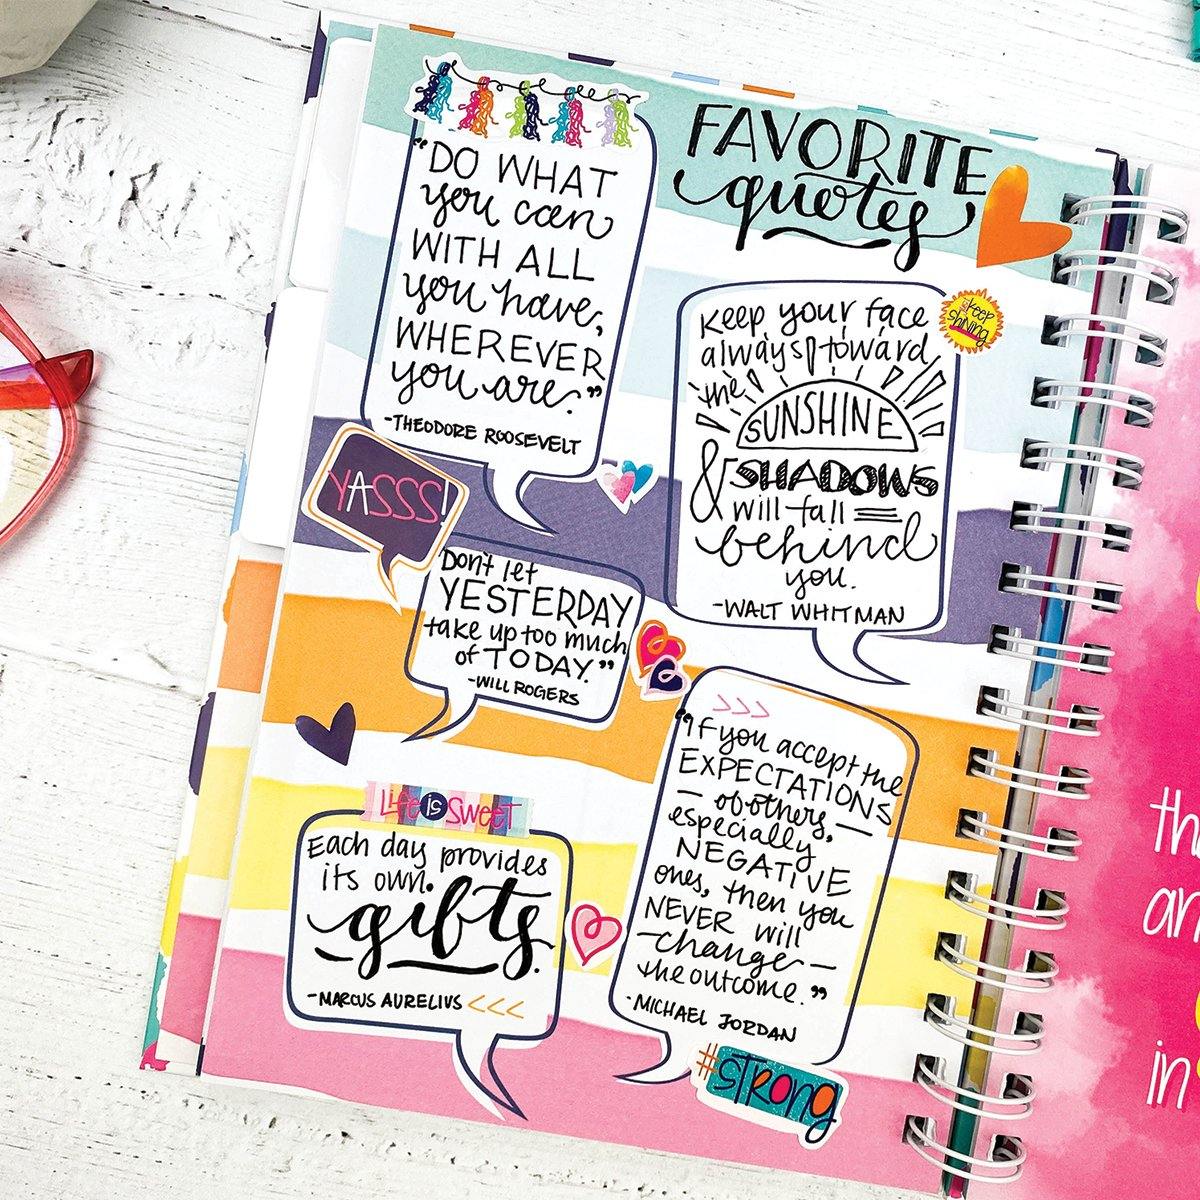 FAVORITE
quotes
"DO WHAT
you can
WITH ALL
you have,
WHEREVER
you are."
-THEODORE ROOSEVELT
Keep your face
always toward
the
SUNSHINE
& SHADOWS
will fall
behind
you.
-WALT WHITMAN
keep
shining
YASSS!
Don't let
YESTERDAY
take up too much
of TODAY."
-WILL ROGERS
>>>
"If you accept the
EXPECTATIONS
- of others, -
especially
NEGATIVE
ones, then you
NEVER will
-change-
the outcome."
-MICHAEL JORDAN
#STRONG
Life is SWEET
Each day provides
its own
gifts.
-MARCUS AURELIUS <<<
in